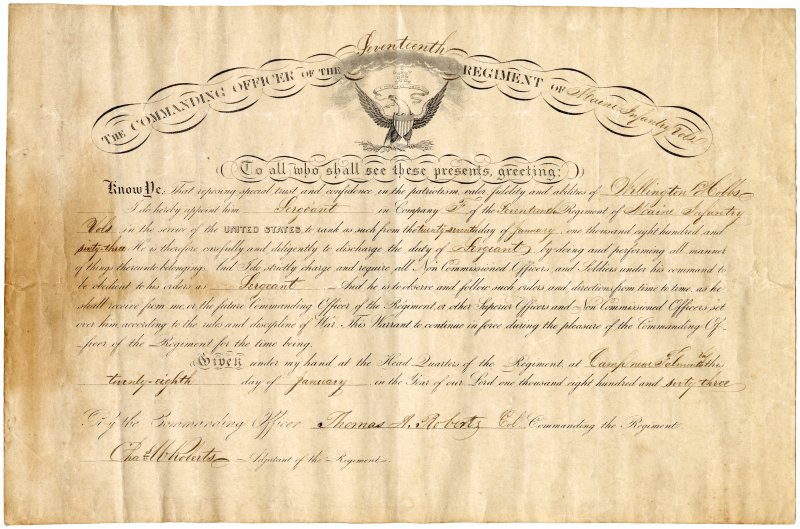 The Commanding Officer of the Seventeenth Regiment of Maine Infantry Vols
To all who shall see these presents, greeting:
Know Ye, That reposing special trust and confidence in the patriotism, valor, fidelity and abilities of Wellington Hobbs
I do hereby appoint him Sergeant in Company of the Seventeenth Regiment of Maine Infantry
Vols in the service of the UNITED STATES, to rank as such from the twenty seventh day of January one thousand eight hundred and
sixty-three He is therefore carefully and diligently to discharge the duty of Sergeant by doing and performing all manner
of things thereunto belonging. And I do strictly charge and require all Non Commissioned Officers and Soldiers under his command to
be obedient to his orders as Sergeant And he is to observe and follow such orders and directions from time to time, as he
shall receive from me, or the future Commanding Officer of the Regiment, or other Superior Officers and Non Commissioned Officers set
over him according to the rules and discipline of War. This Warrant to continue in force during the pleasure of the Commanding Of-
ficer of the Regiment for the time being.
Given under my hand at the Head Quarters of the Regiment, at Camp near Falmouth the
twenty-eighth day of January in the Year of our Lord one thousand eight hundred and sixty three
By the Commanding Officer Thomas A. Roberts Col. Commanding the Regiment
Chas W Roberts Adjutant of the Regiment.